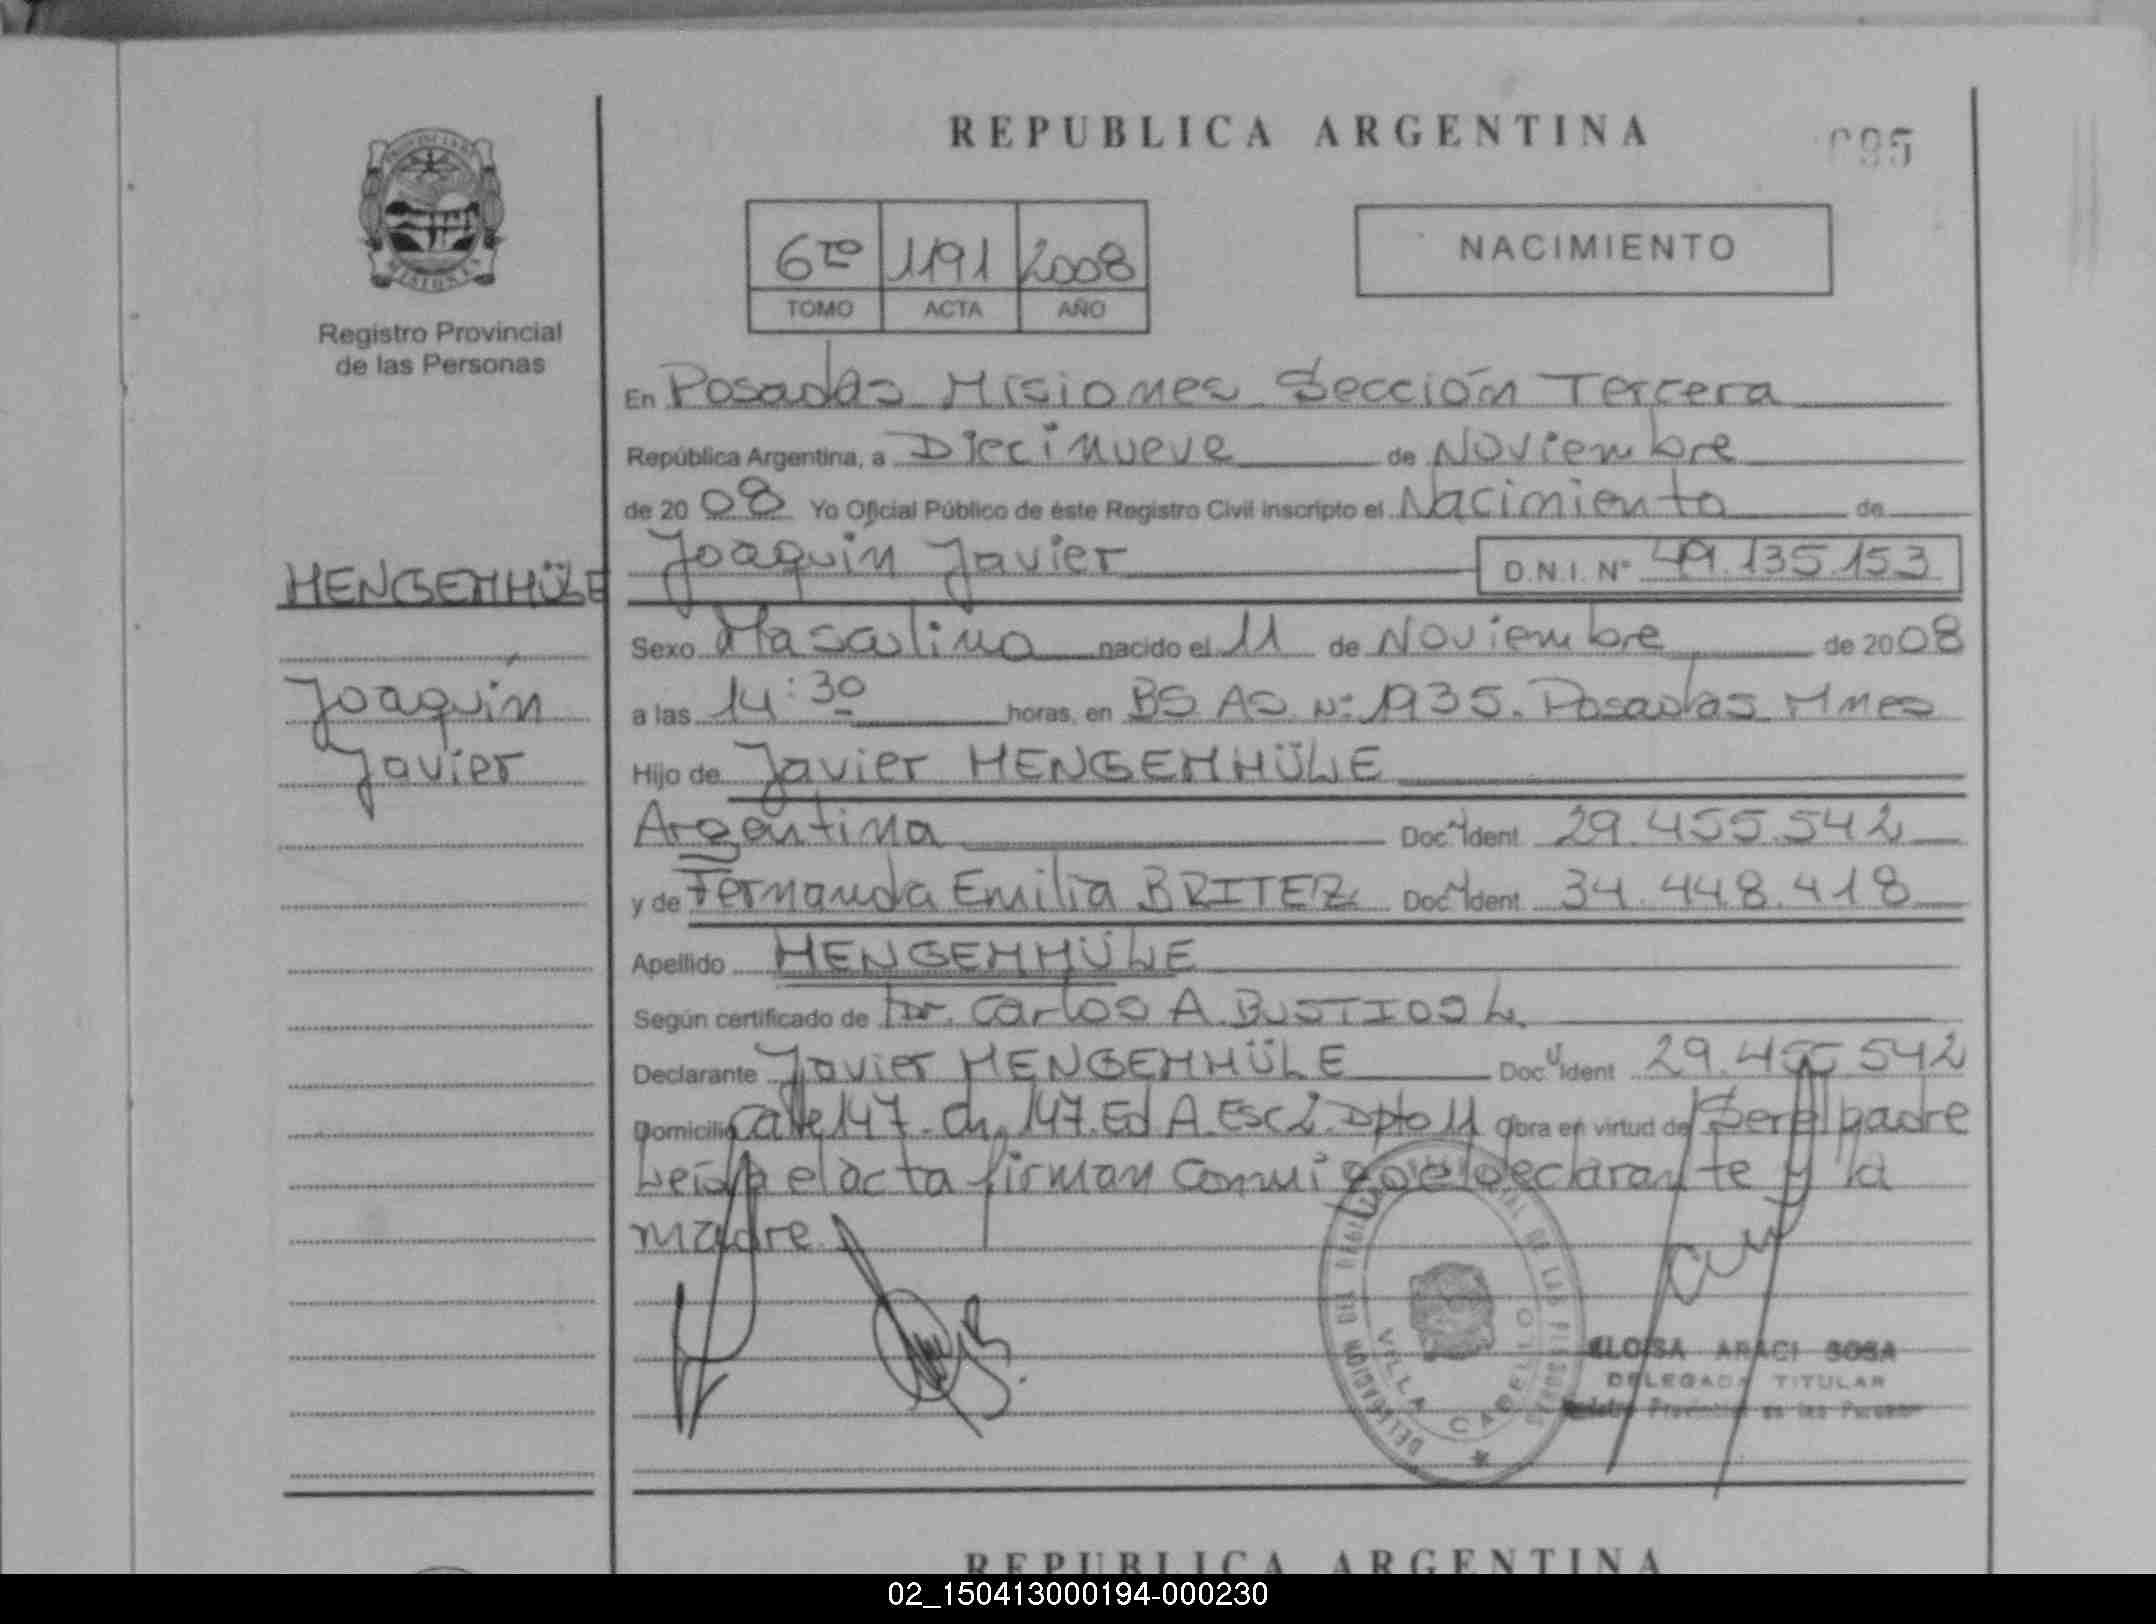 REPUBLICA ARGENTINA
095
6to 1191 2008
TOMO ACTA AÑO
NACIMIENTO
PROVINCIA DE MISIONES
Registro Provincial
de las Personas
En Posadas Misiones Sección Tercera
República Argentina, a Diecinueve de Noviembre
de 20 08 Yo Oficial Público de éste Registro Civil inscripto el Nacimiento de
HENGEMHÜLE
Joaquín Javier D.N.I. Nº 49.135.153
Sexo Masculino nacido el 11 de Noviembre de 20 08
Joaquín
a las 14:30 horas, en BS AS Nº 1935. Posadas Mnes
Javier
Hijo de Javier HENGEMHÜLE
Argentina Doc. Ident 29.455.542
y de Fernanda Emilia BRITEZ Doc. Ident 34.448.418
Apellido HENGEMHÜLE
Según certificado de Dr. Carlos A. BUSTIOS L.
Declarante Javier HENGEMHÜLE Doc. Ident 29.455.542
Domicilio Calle 147. Ch. 147. Ed A. Esc 2. Dpto 11 Obra en virtud de Ser el padre
Leída el acta firman conmigo el declarante y la
madre
DELEGACION DEL REGISTRO PROVINCIAL DE LAS PERSONAS
VILLA CABELLO
ELOISA ARACI SOSA
DELEGADA TITULAR
Registro Provincial de las Personas
REPUBLICA ARGENTINA
02_150413000194-000230